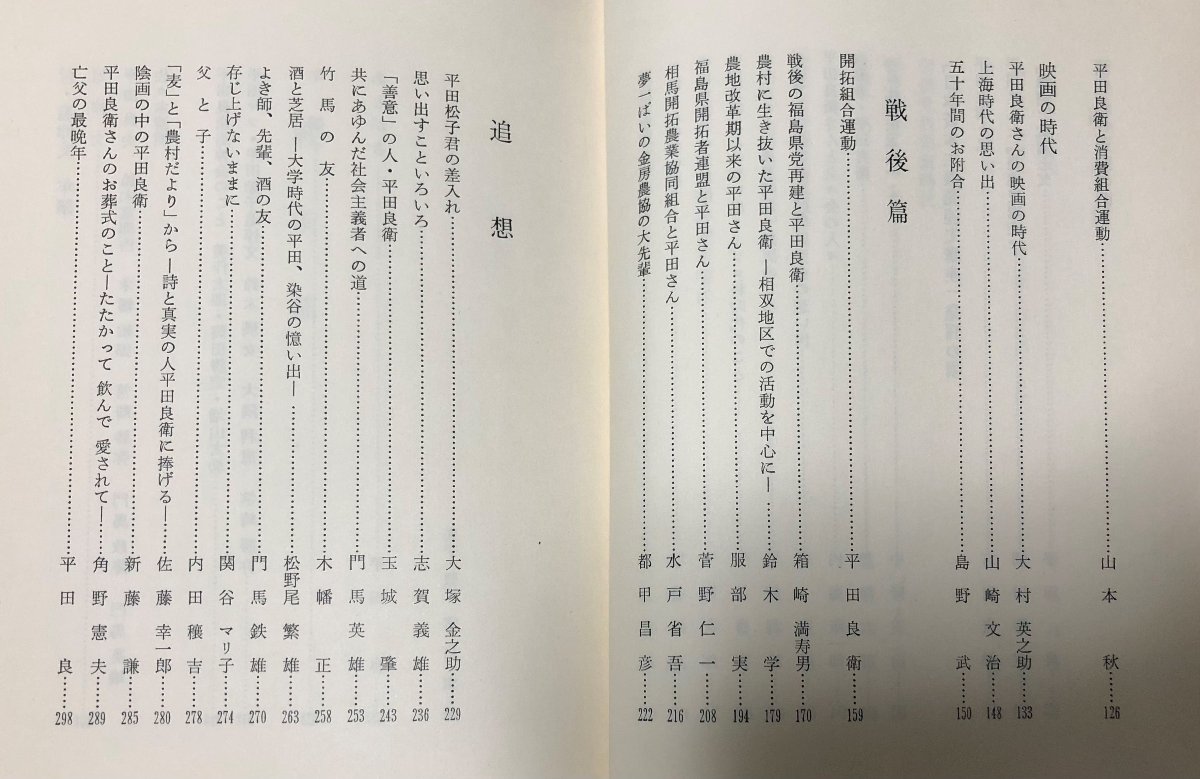 平田良衛と消費組合運動……山本 秋……126
映画の時代
平田良衛さんの映画の時代……大村英之助……133
上海時代の思い出……山崎文治……148
五十年間のお附合……島野 武……150
戦後篇
開拓組合運動……平田良衛……159
戦後の福島県党再建と平田良衛……箱崎満寿男……170
農村に生き抜いた平田良衛 ―相双地区での活動を中心に―……鈴木 学……179
農地改革期以来の平田さん……服部 実……194
福島県開拓者連盟と平田さん……菅野仁一……208
相馬開拓農業協同組合と平田さん……水戸省吾……216
夢一ぱいの金房農協の大先輩……都甲昌彦……222
追想
平田松子君の差入れ……大塚金之助……229
思い出すこといろいろ……志賀義雄……236
「善意」の人・平田良衛……玉城 肇……243
共にあゆんだ社会主義者への道……門馬英雄……253
竹馬の友……木幡 正……258
酒と芝居 ―大学時代の平田、染谷の憶い出―……松野尾繁雄……263
よき師、先輩、酒の友……門馬鉄雄……270
存じ上げないままに……関谷マリ子……274
父と子……内田穣吉……278
「麦」と「農村だより」から ―詩と真実の人平田良衛に捧げる―……佐藤幸一郎……280
陰画の中の平田良衛……新藤 謙……285
平田良衛さんのお葬式のこと―たたかって 飲んで 愛されて―……角野憲夫……289
亡父の最晩年……平田 良……298